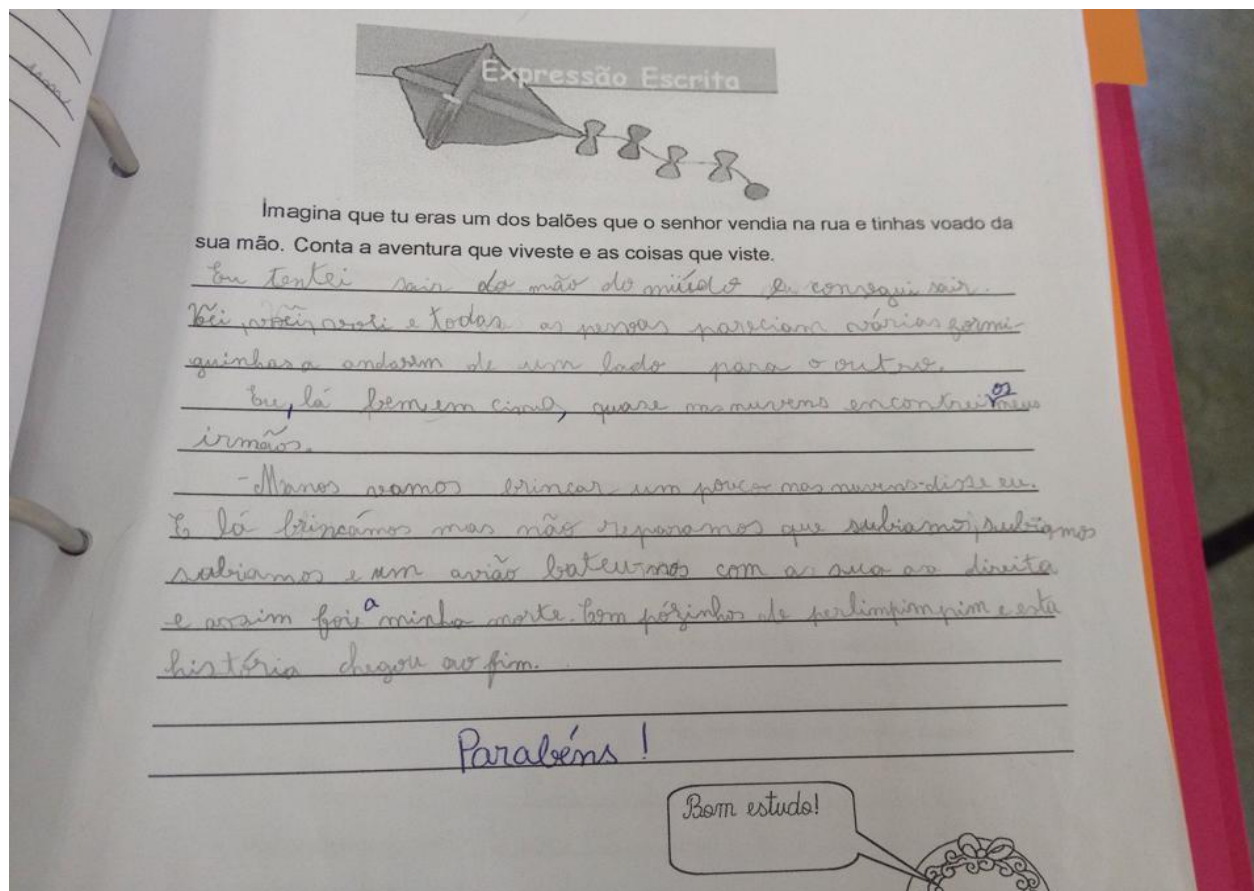 Expressão Escrita
Imagina que tu eras um dos balões que o senhor vendia na rua e tinhas voado da
sua mão. Conta a aventura que viveste e as coisas que viste.
Eu tentei sair da mão do miúdo e consegui sair.
voei e todas as pessoas pareciam várias formi-
guinhas a andarem de um lado para o outro.
Eu, lá bem em cima, quase nas nuvens encontrei os meus
irmãos.
-Manos vamos brincar um pouco nas nuvens-disse eu.
E lá brincámos mas não reparamos que subiamos, subiamos
subiamos e um avião bateu-nos com a sua asa direita
e assim foi a minha morte. Com pózinhos de perlimpimpim e esta
história chegou ao fim.
Parabéns!
Bom estudo!